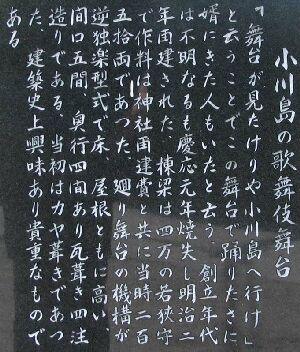 小川島の歌舞伎舞台
「舞台が見たけりや小川島へ行け」
と云うことでこの舞台で踊りたさに
婿にきた人もいたと云う 創立年代
は不明なるも慶応元年焼失し明治二
年再建された 棟梁は四万の若狭守
で作料は神社再建費と共に当時二百
五拾両であつた 廻り舞台の機構が
逆独楽型式で床、屋根ともに高い、
間口五間、奥行四間あり瓦葺き四注
造りである、当初はカヤ葺きであつ
た、建築史上興味あり貴重なもので
ある